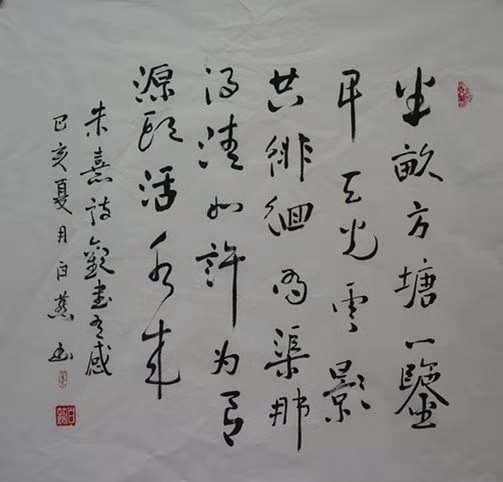 半畝方塘一鑒
开天光雲影
共徘徊問渠那
得清如許为有
源頭活水来
朱熹詩觀書有感
己亥夏月白燕书